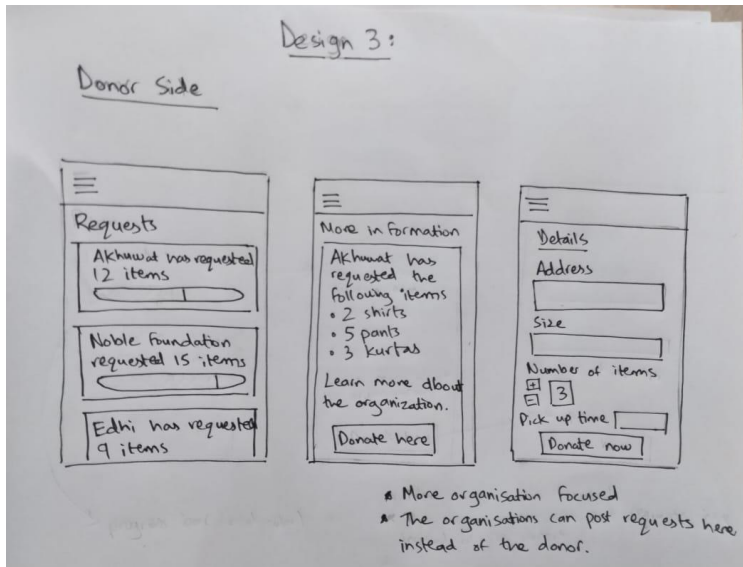 Design 3:
Donor Side
Requests
Akhuwat has requested
12 items
Noble Foundation
requested 15 items
Edhi has requested
9 items
More information
Akhuwat has
requested the
following items
• 2 shirts
• 5 pants
• 3 kurtas
Learn more about
the organization.
Donate here
Details
Address
Size
Number of items
+
-
3
Pick up time
Donate now
* More organisation focused
* The organisations can post requests here
instead of the donor.